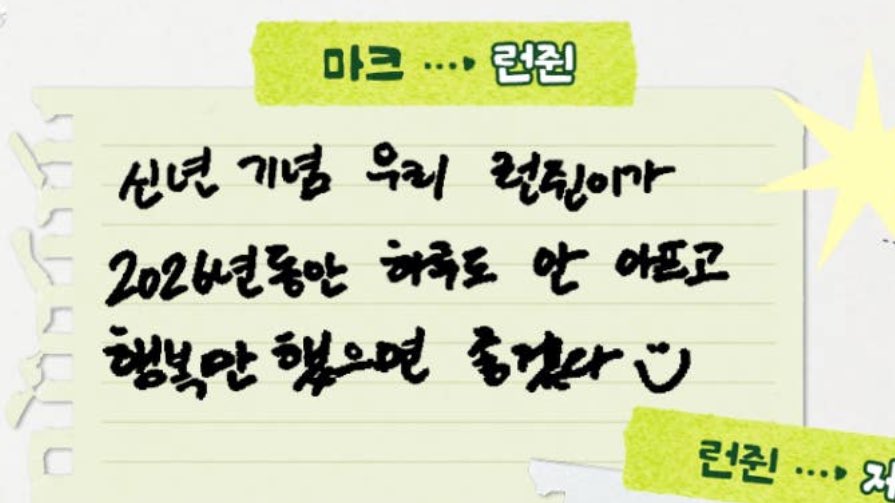 마크 ····› 런쥔
신년 기념 우리 런쥔이가
2026년동안 하루도 안 아프고
행복만 했으면 좋겠다
런쥔 ····›